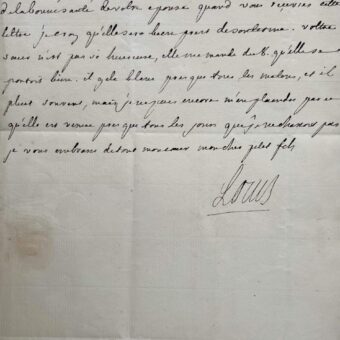 de la bonne santé de votre epouse quand vous recevres cette
lettre je croy qu'elle sera bien pres de son terme. vostre
soeur n'est pas si heureuse, elle me mande qu'elle se
portoit bien. il gele blanc presque tous les matins, et il
pleut souvent, mais je ne puis encore m'en plaindre parce
qu'elle est venue presque tous les jours que je ne chassois pas
je vous embrasse de tout mon coeur mon cher petit fils
Louis